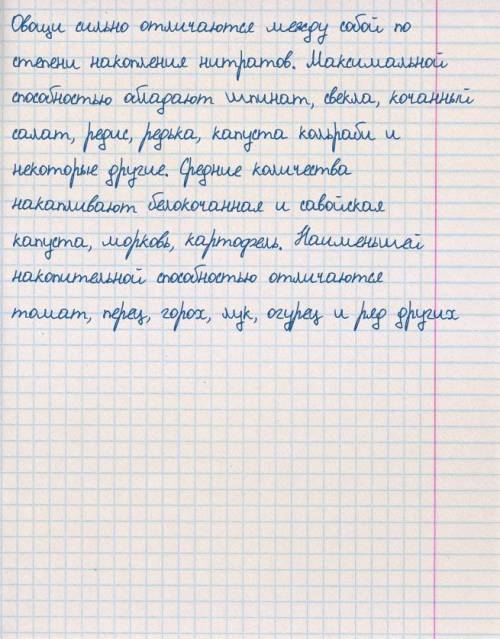 Овощи сильно отличаются между собой по
степени накопления нитратов. Максимальной
способностью обладают шпинат, свекла, кочанный
салат, редис, редька, капуста кольраби и
некоторые другие. Средние количества
накапливают белокочанная и савойская
капуста, морковь, картофель. Наименьшей
накопительной способностью отличаются
томат, перец, горох, лук, огурец и ряд других